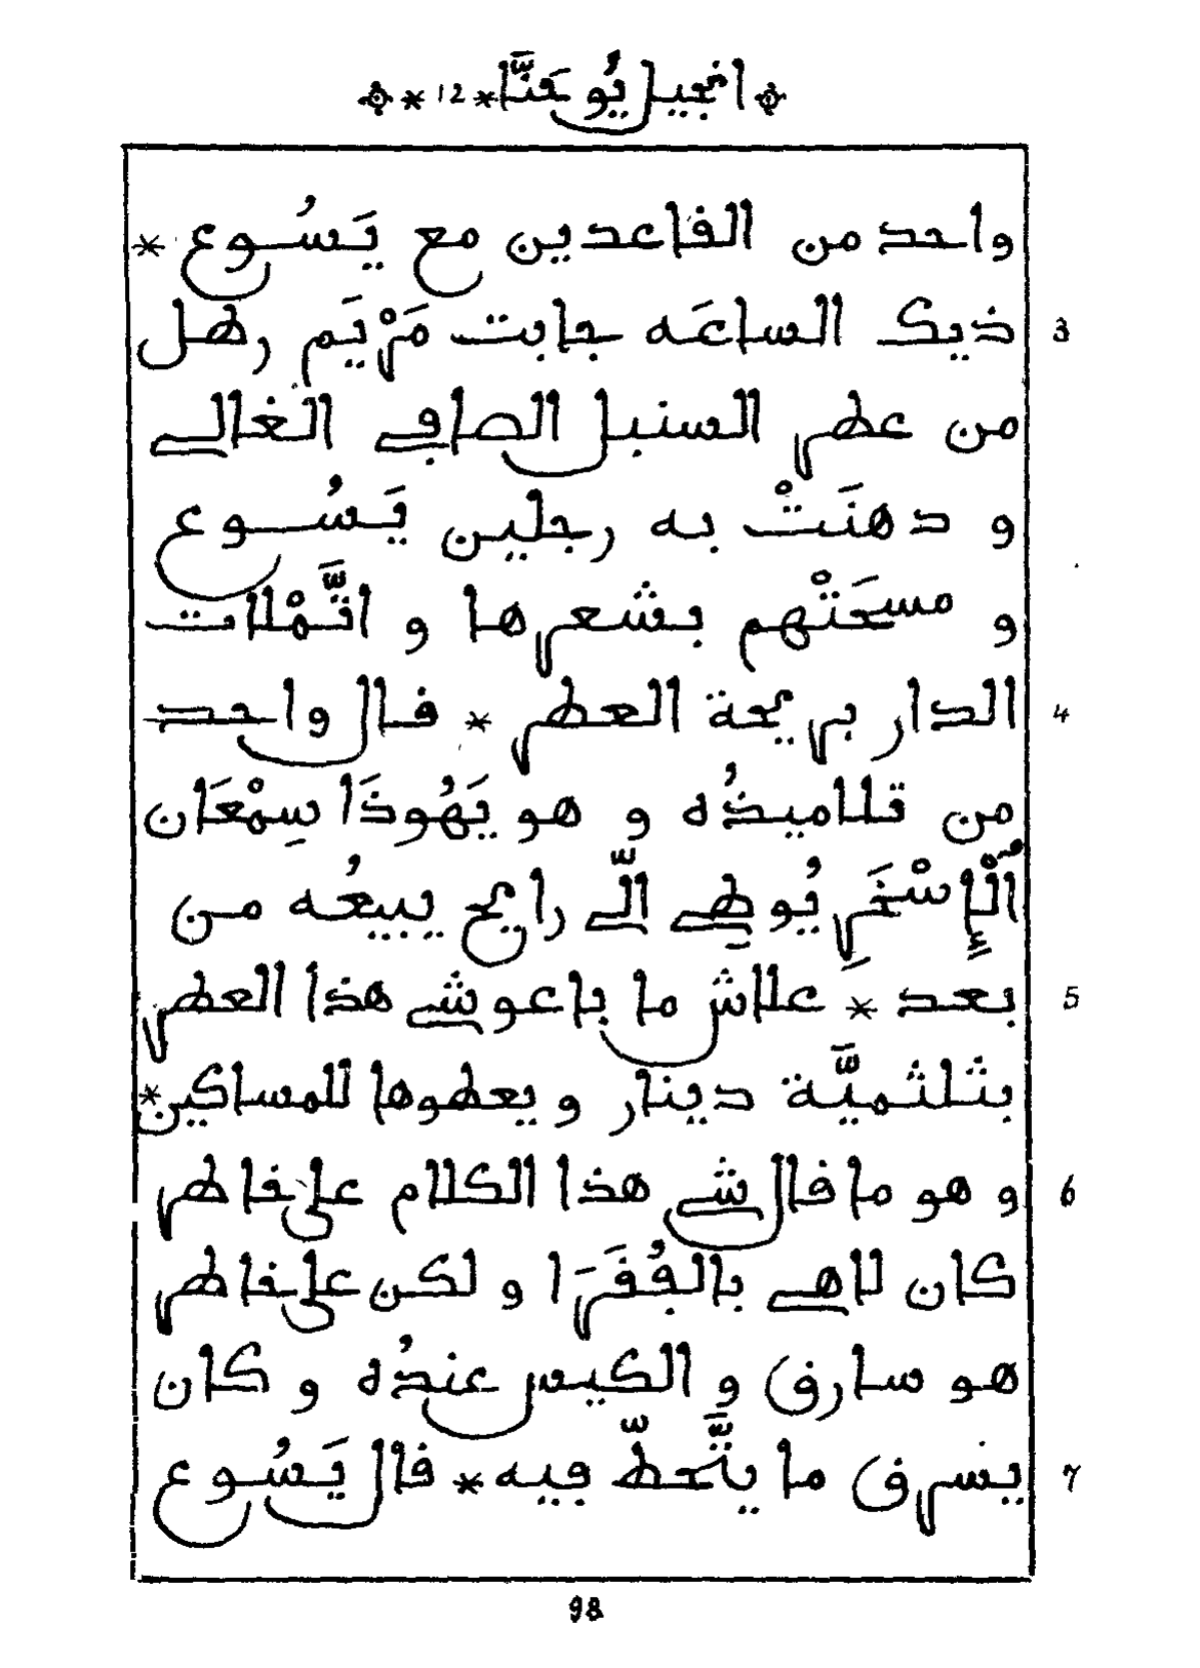 انجيل يُوحَنَّا * 12 *
واحد من الڧاعدين مع يَسُوع *
3 ذيك الساعَه جابت مَرْيَم رطل
من عطر السنبل الصاڢي الغالي
و دهنَتْ به رجلين يَسُوع
و مسحَتْهم بشعرها و اتَّمْلات
4 الدار بريحة العطر * ڧال واحد
من تلاميذُه و هو يَهُوذَا سِمْعَان
اُلْإِسْخَرِيُوطِي الِّي رايح يبيعُه من
5 بعد * علاش ما باعوشي هذا العطر
بثلثميَّة دينار و يعطوها للمساكين *
6 و هو ما ڧالشي هذا الكلام على خاطر
كان لاهي بالڢُڧَرَا و لكن على خاطر
هو سارڧ و الكيس عندُه و كان
7 يسرڧ ما يتَّحطّ ڢيه * ڧال يَسُوع
98